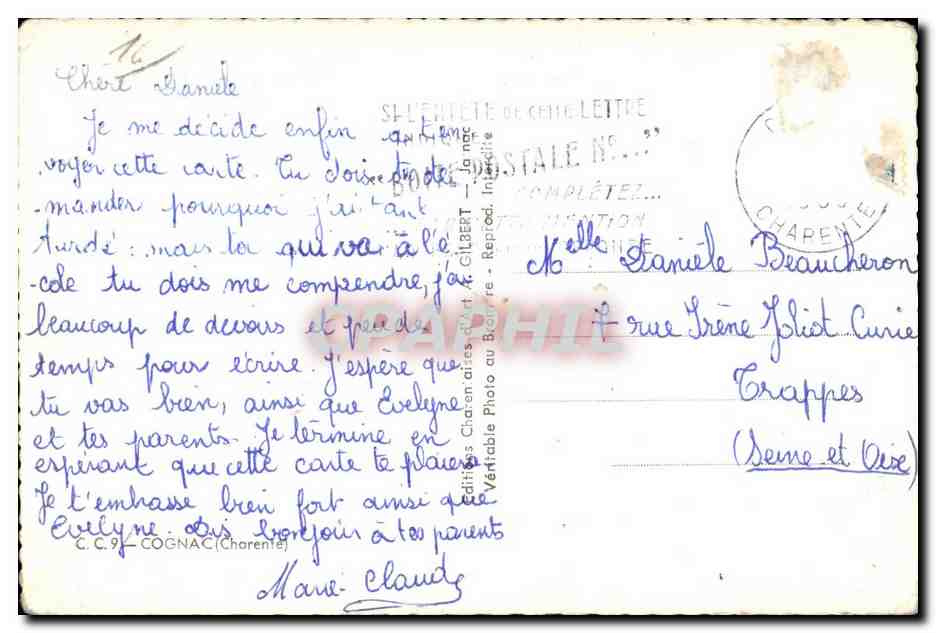 16
Chère Danièle
Je me décide enfin à t'en
voyer cette carte. Tu dois te de
-mander pourquoi j'ai tant
tardé : mais toi qui va à l'é
-cole tu dois me comprendre, j'ai
beaucoup de devoirs et peu de
temps pour écrire. J'espère que
tu vas bien, ainsi que Evelyne
et tes parents. Je termine en
espérant que cette carte te plaiera
Je t'embrasse bien fort ainsi que
Evelyne. Dis bonjour à tes parents
Marie-Claude
C. C. 9 — COGNAC (Charente)
Editions Charentaises d'Art A. GILBERT — Jarnac
Véritable Photo au Bromure - Reprod. Interdite
SI L'ENTÊTE DE CETTE LETTRE
INDIQUE
"BOITE POSTALE N°..."
COMPLÉTEZ...
CHARENTE
Melle Danièle Beaucheron
7 rue Irène Joliot Curie
Trappes
(Seine et Oise)
CPAPHIL